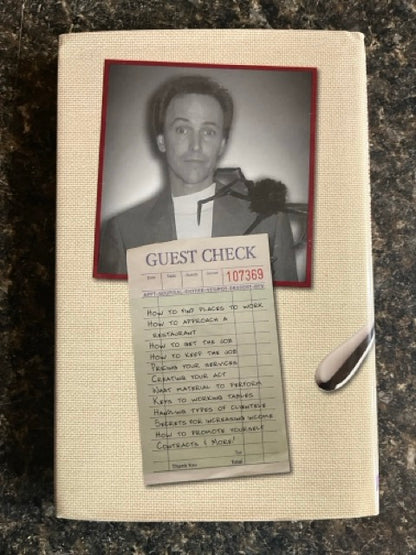 GUEST CHECK
107369
APPT-SOUP/SAL-ENTREE-VEG/POT-DESSERT-BEV
HOW TO FIND PLACES TO WORK
HOW TO APPROACH A
RESTAURANT
HOW TO GET THE JOB
HOW TO KEEP THE JOB
PRICING YOUR SERVICES
CREATING YOUR ACT
WHAT MATERIAL TO PERFORM
KEYS TO WORKING TABLES
HANDLING TYPES OF CLIENTELE
SECRETS FOR INCREASING INCOME
HOW TO PROMOTE YOURSELF
CONTRACTS & MORE!
Tax
Thank You
Total